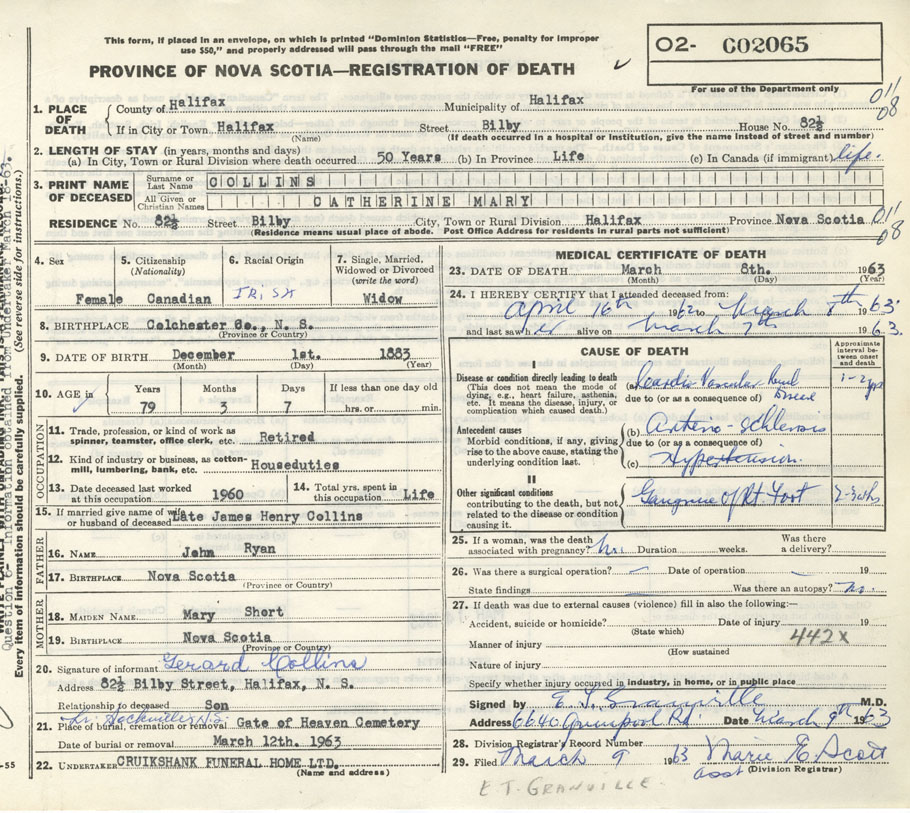 This form, if placed in an envelope, on which is printed "Dominion Statistics—Free, penalty for improper
use $50," and properly addressed will pass through the mail "FREE"
O2- C02065
PROVINCE OF NOVA SCOTIA—REGISTRATION OF DEATH
For use of the Department only
011/08
1. PLACE OF DEATH
County of Halifax Municipality of Halifax
If in City or Town Halifax Street Bilby House No. 82½
(Name) (If death occurred in a hospital or institution, give the name instead of street and number)
2. LENGTH OF STAY (in years, months and days)
(a) In City, Town or Rural Division where death occurred 50 Years (b) In Province Life (c) In Canada (if immigrant) life.
3. PRINT NAME OF DECEASED
Surname or Last Name COLLINS
All Given or Christian Names CATHERINE MARY
RESIDENCE No. 82½ Street Bilby City, Town or Rural Division Halifax Province Nova Scotia
(Residence means usual place of abode. Post Office Address for residents in rural parts not sufficient)
011/08
4. Sex Female
5. Citizenship (Nationality) Canadian
6. Racial Origin IRISH
7. Single, Married, Widowed or Divorced (write the word) Widow
8. BIRTHPLACE Colchester Co., N. S.
(Province or Country)
9. DATE OF BIRTH December 1st. 1883
(Month) (Day) (Year)
10. AGE in Years 79 Months 3 Days 7 If less than one day old hrs. or min.
OCCUPATION
11. Trade, profession, or kind of work as spinner, teamster, office clerk, etc. Retired
12. Kind of industry or business, as cotton-mill, lumbering, bank, etc. Houseduties
13. Date deceased last worked at this occupation 1960
14. Total yrs. spent in this occupation Life
15. If married give name of wife or husband of deceased Late James Henry Collins
FATHER
16. NAME John Ryan
17. BIRTHPLACE Nova Scotia
(Province or Country)
MOTHER
18. MAIDEN NAME Mary Short
19. BIRTHPLACE Nova Scotia
(Province or Country)
20. Signature of informant Gerard Collins
Address 82½ Bilby Street, Halifax, N. S.
Relationship to deceased Son
Sackville N.S.
21. Place of burial, cremation or removal Gate of Heaven Cemetery
Date of burial or removal March 12th. 1963
22. UNDERTAKER CRUIKSHANK FUNERAL HOME LTD.
(Name and address)
MEDICAL CERTIFICATE OF DEATH
23. DATE OF DEATH March 8th. 1963
(Month) (Day) (Year)
24. I HEREBY CERTIFY that I attended deceased from:
April 16th 1962 to March 8th 1963
and last saw her alive on March 7th 1963.
CAUSE OF DEATH
Approximate interval between onset and death
Disease or condition directly leading to death
(This does not mean the mode of dying, e.g., heart failure, asthenia, etc. It means the disease, injury, or complication which caused death.)
(a) Cardio Vascular Renal Disease 1-2 yrs
due to (or as a consequence of)
Antecedent causes
Morbid conditions, if any, giving rise to the above cause, stating the underlying condition last.
(b) Arterio-Schlerosis
due to (or as a consequence of)
(c) Hypertension.
II
Other significant conditions
contributing to the death, but not related to the disease or condition causing it.
Gangrene of Rt. Foot
25. If a woman, was the death associated with pregnancy? No. Duration weeks. Was there a delivery?
26. Was there a surgical operation? — Date of operation — 19
State findings Was there an autopsy? No.
27. If death was due to external causes (violence) fill in also the following:—
Accident, suicide or homicide? Date of injury 19
(State which) 442X
Manner of injury
(How sustained
Nature of injury
Specify whether injury occurred in industry, in home, or in public place
Signed by E. T. Granville M.D.
Address 6640 Quinpool Rd. Date March 9th 1963
28. Division Registrar's Record Number
29. Filed March 9 1963 Marie E Scott
asst (Division Registrar)
E.T. GRANVILLE.
Question 6- Information obtained from Undertaker March 18-63.
Every item of information should be carefully supplied. (See reverse side for instructions.)
-55